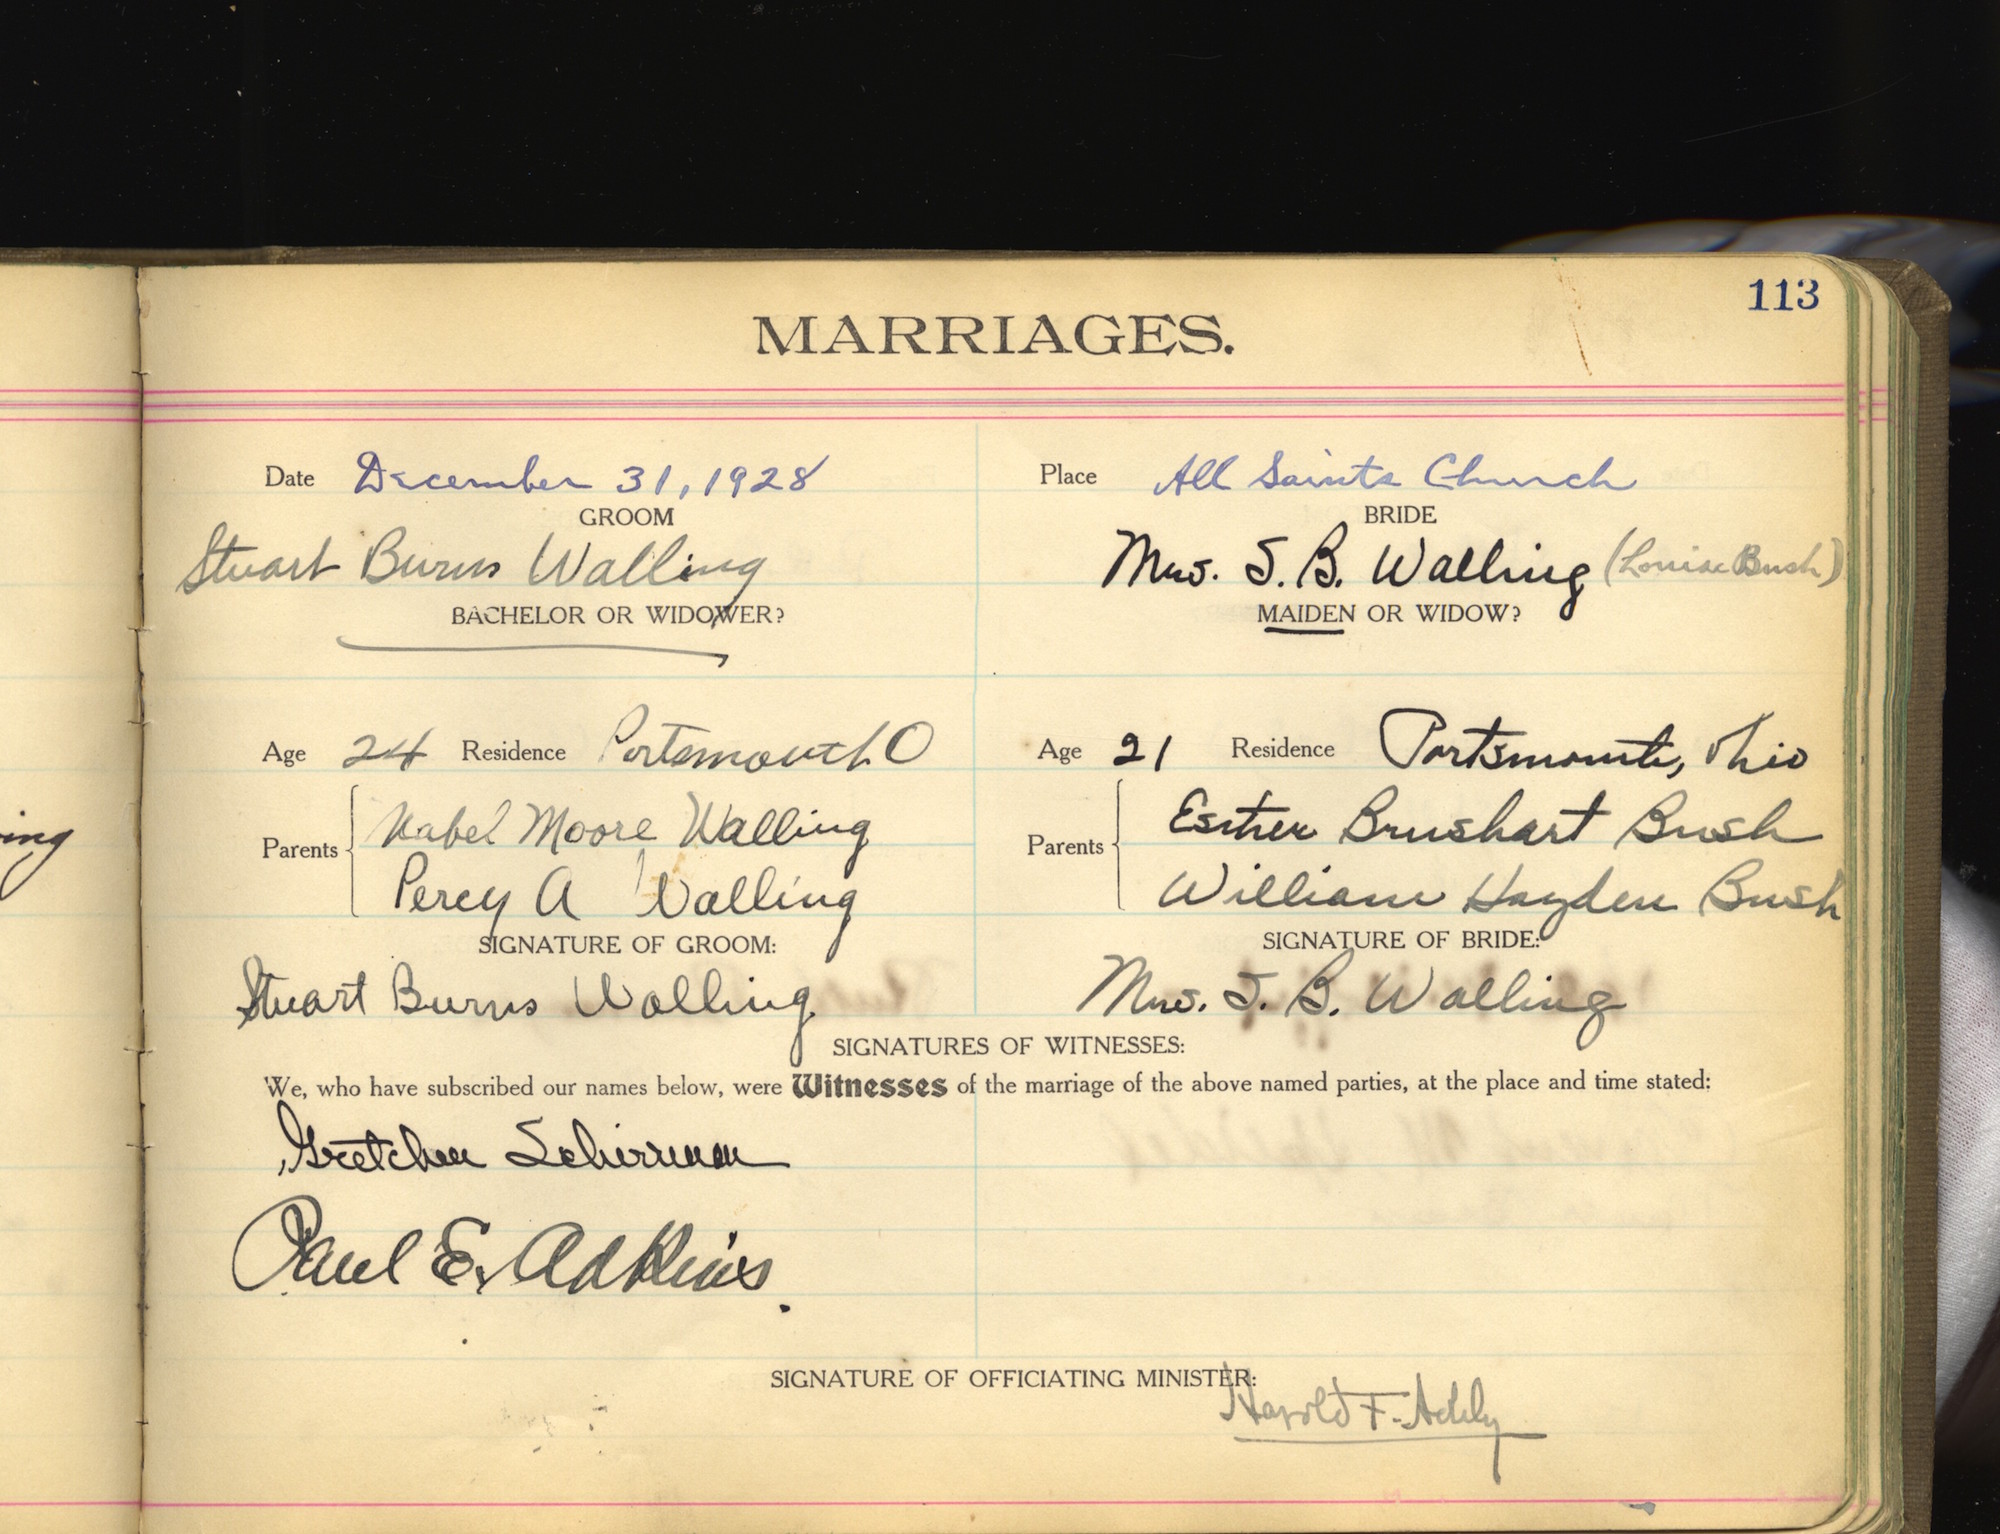 113
MARRIAGES.
Date December 31, 1928 Place All Saints Church
GROOM BRIDE
Stuart Burns Walling Mrs. S. B. Walling (Louise Bush)
BACHELOR OR WIDOWER? MAIDEN OR WIDOW?
Age 24 Residence Portsmouth O Age 21 Residence Portsmouth, Ohio
Parents Mabel Moore Walling Parents Esther Brushart Bush
Percy A Walling William Hayden Bush
ing
SIGNATURE OF GROOM: SIGNATURE OF BRIDE:
Stuart Burns Walling Mrs. S. B. Walling
SIGNATURES OF WITNESSES:
We, who have subscribed our names below, were Witnesses of the marriage of the above named parties, at the place and time stated:
Gretchen
Paul E. Adkins.
SIGNATURE OF OFFICIATING MINISTER:
Harold F. Addy